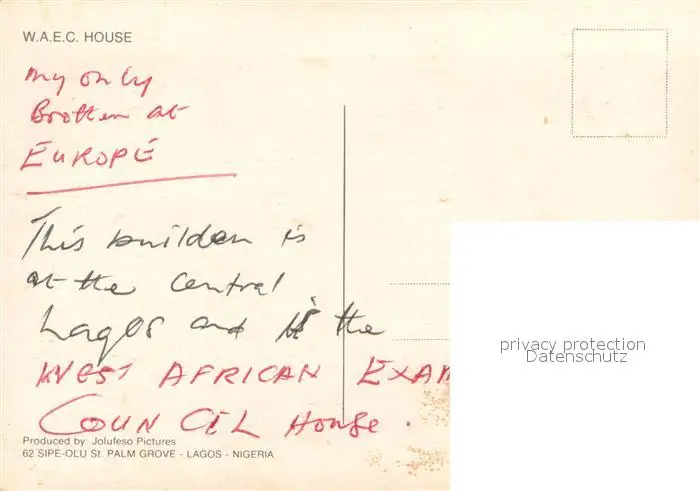 W.A.E.C. HOUSE
my only
Brother at
EUROPE
This builden is
at the central
Lagos and is the
WEST AFRICAN EXAM
COUNCIL House.
Produced by: Jolufeso Pictures
62 SIPE-OLU St. PALM GROVE - LAGOS - NIGERIA
privacy protection
Datenschutz